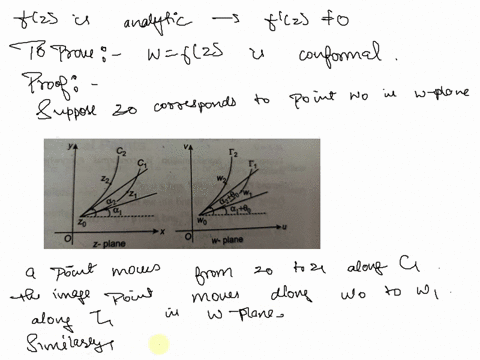 f(z) is analytic → f'(z) ≠ 0
To Prove:- W=f(z) is conformal.
Proof:-
Suppose z0 corresponds to point w0 in w-plane
y C2 C1 z2 z1 α2 α1 z0 O x z-plane
v Γ2 Γ1 w2 w1 α2+θ0 α1+θ0 w0 O u w-plane
a point moves from z0 to z1 along C1.
the image point moves along w0 to w1.
along Γ1 in w-plane.
Similarly,